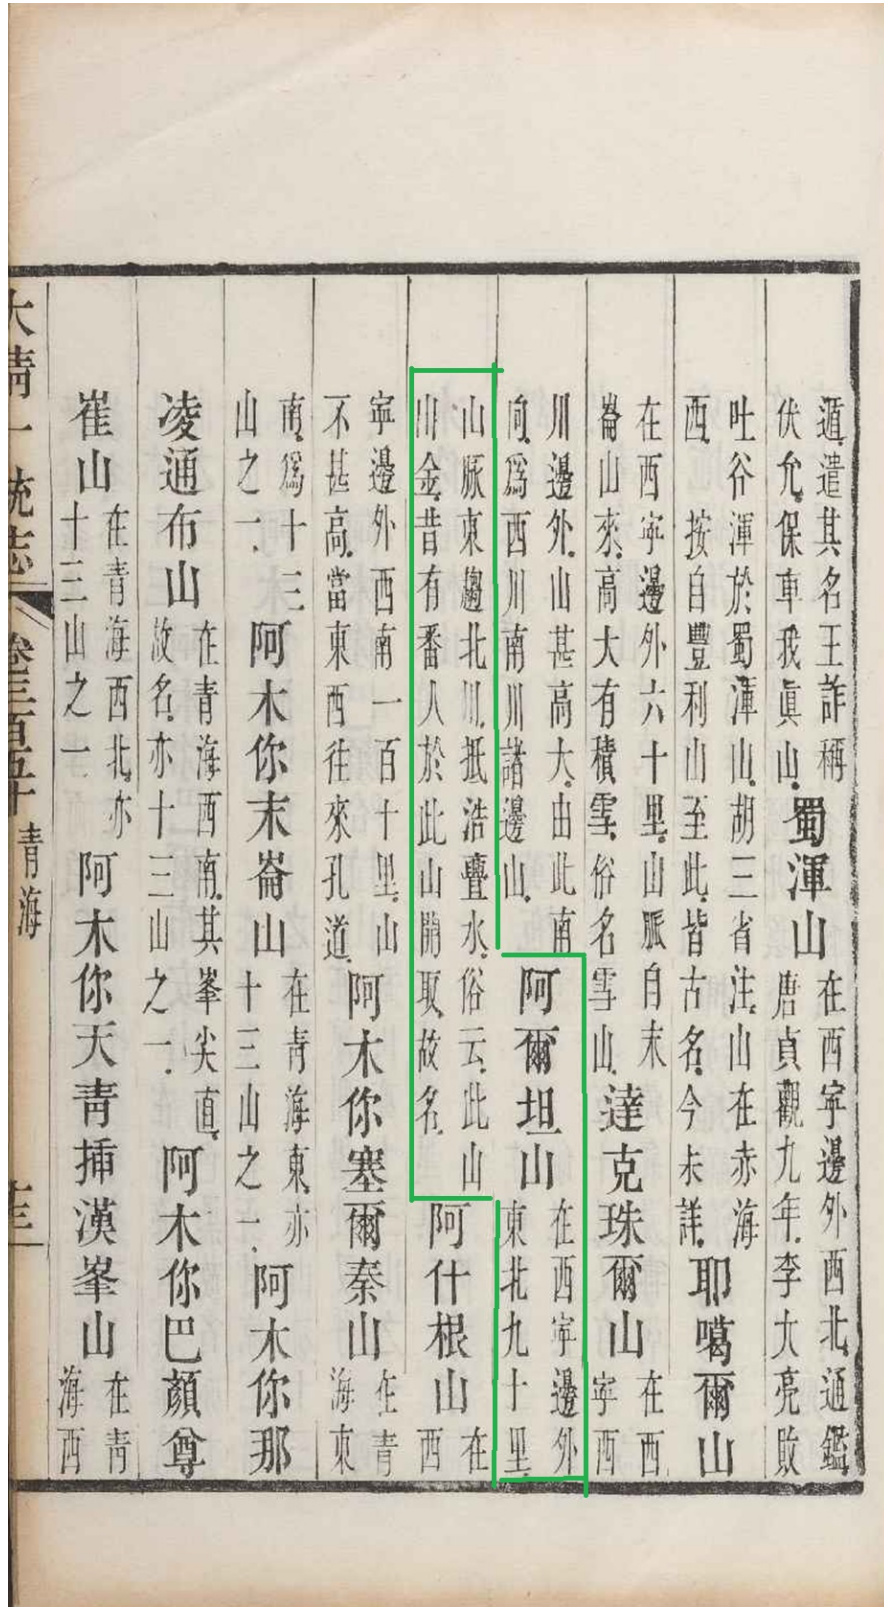 遁遣其名王詐稱伏允保車我眞山蜀渾山在西寧邊外西北通鑑唐貞觀九年李大亮敗
吐谷渾於蜀渾山胡三省注山在赤海西 按自豐利山至此皆古名今未詳耶噶爾山
在西寧邊外六十里山脈自末崙山來高大有積雪俗名雪山達克珠爾山在西寧西
川邊外山甚高大由此南向爲西川南川諸邊山阿爾坦山在西寧邊外東北九十里
山脈東趨北川抵浩亹水俗云此山出金昔有番人於此山開取故名阿什根山在西
寧邊外西南一百十里山不甚高當東西往來孔道阿木你塞爾秦山在青海東
南爲十三山之一阿木你末崙山在青海東亦十三山之一阿木你那
凌通布山在青海西南其峯尖直故名亦十三山之一阿木你巴顏尊
崔山在青海西北亦十三山之一阿木你天青揷漢峯山在青海西
大清一統志 卷三百五十 青海 十三